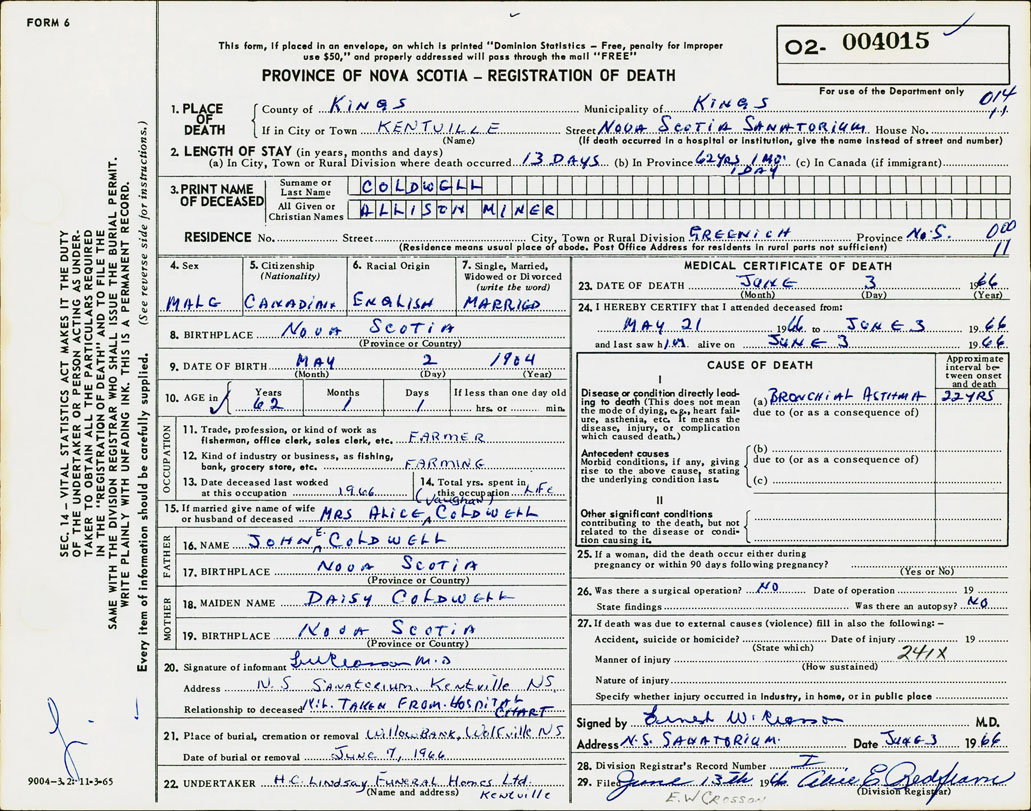 FORM 6
This form, if placed in an envelope, on which is printed "Dominion Statistics – Free, penalty for improper
use $50," and properly addressed will pass through the mail "FREE"
PROVINCE OF NOVA SCOTIA – REGISTRATION OF DEATH
O2- 004015
For use of the Department only
014
11
1. PLACE OF DEATH
County of KINGS Municipality of KINGS
If in City or Town KENTVILLE Street NOVA SCOTIA SANATORIUM House No.
(Name) (If death occurred in a hospital or institution, give the name instead of street and number)
2. LENGTH OF STAY (in years, months and days)
(a) In City, Town or Rural Division where death occurred 13 DAYS (b) In Province 62 YRS 1 MO. 1 DAY (c) In Canada (if immigrant)
3. PRINT NAME OF DECEASED
Surname or Last Name COLDWELL
All Given or Christian Names ALLISON MINER
RESIDENCE No. Street City, Town or Rural Division GREENICH Province No. S. 000
11
(Residence means usual place of abode. Post Office Address for residents in rural parts not sufficient)
4. Sex MALE
5. Citizenship (Nationality) CANADIAN
6. Racial Origin ENGLISH
7. Single, Married, Widowed or Divorced (write the word) MARRIED
8. BIRTHPLACE NOVA SCOTIA
(Province or Country)
9. DATE OF BIRTH MAY 2 1904
(Month) (Day) (Year)
10. AGE in Years 62 Months 1 Days 1 If less than one day old hrs. or min.
OCCUPATION
11. Trade, profession, or kind of work as
fisherman, office clerk, sales clerk, etc. FARMER
12. Kind of industry or business, as fishing,
bank, grocery store, etc. FARMING
13. Date deceased last worked
at this occupation 1966
14. Total yrs. spent in
this occupation LIFE
15. If married give name of wife
or husband of deceased MRS ALICE (Vaughan) COLDWELL
FATHER
16. NAME JOHN E. COLDWELL
17. BIRTHPLACE NOVA SCOTIA
(Province or Country)
MOTHER
18. MAIDEN NAME DAISY COLDWELL
19. BIRTHPLACE NOVA SCOTIA
(Province or Country)
20. Signature of informant EW Crosson M.D
Address N.S SANATORIUM. Kentville NS
Relationship to deceased Nil. TAKEN FROM HOSPITAL CHART
21. Place of burial, cremation or removal WILLOWBANK, WOLFVILLE NS
Date of burial or removal JUNE 7, 1966
22. UNDERTAKER H.C. Lindsay Funeral Homes Ltd.
(Name and address) Kentville
MEDICAL CERTIFICATE OF DEATH
23. DATE OF DEATH JUNE 3 1966
(Month) (Day) (Year)
24. I HEREBY CERTIFY that I attended deceased from:
MAY 21 1966 to JUNE 3 1966
and last saw him alive on JUNE 3 1966
CAUSE OF DEATH
Approximate interval between onset and death
I
Disease or condition directly leading to death (This does not mean the mode of dying, e.g., heart failure, asthenia, etc. It means the disease, injury, or complication which caused death.)
(a) BRONCHIAL ASTHMA 22 YRS
due to (or as a consequence of)
Antecedent causes
Morbid conditions, if any, giving rise to the above cause, stating the underlying condition last.
(b)
due to (or as a consequence of)
(c)
II
Other significant conditions
contributing to the death, but not related to the disease or condition causing it.
25. If a woman, did the death occur either during
pregnancy or within 90 days following pregnancy?
(Yes or No)
26. Was there a surgical operation? NO Date of operation 19
State findings Was there an autopsy? NO
27. If death was due to external causes (violence) fill in also the following: –
Accident, suicide or homicide? Date of injury 19
(State which)
Manner of injury 241X
(How sustained)
Nature of injury
Specify whether injury occurred in industry, in home, or in public place
Signed by Ernest W. Crosson M.D.
Address N.S. SANATORIUM. Date JUNE 3 1966
28. Division Registrar's Record Number I
29. Filed June 13th 1966 E
(Division Registrar)
E.W CROSSON
SEC. 14 – VITAL STATISTICS ACT MAKES IT THE DUTY
OF THE UNDERTAKER OR PERSON ACTING AS UNDER-
TAKER TO OBTAIN ALL THE PARTICULARS REQUIRED
IN THE "REGISTRATION OF DEATH" AND TO FILE THE
SAME WITH THE DIVISION REGISTRAR WHO SHALL ISSUE THE BURIAL PERMIT.
WRITE PLAINLY WITH UNFADING INK. THIS IS A PERMANENT RECORD.
Every item of information should be carefully supplied. (See reverse side for instructions.)
9004-3.2: 11-3-65